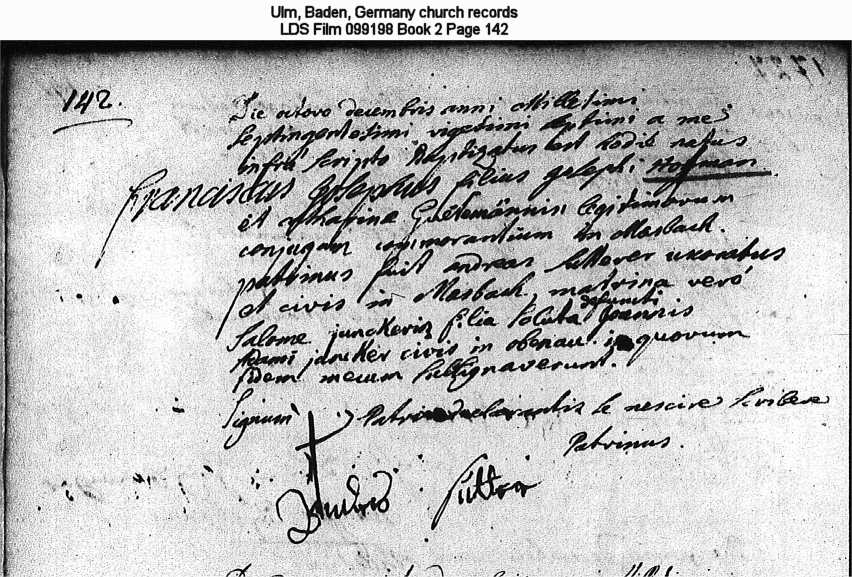 Ulm, Baden, Germany church records
LDS Film 099198 Book 2 Page 142
142.
Die octavo decembris anni Millesimi
septingentesimi vigesimi septimi a me
infra scripto baptizatus est hodie natus
Franciscus Josephus filius Josephi Hofman
et Catharina legitimorum
conjugum commorantium in Mosbach.
patrinus fuit andreas sutterer uxoratus
et civis in Mosbach, matrina vero
Salome junckerin filia soluta defuncti Joannis
Adami juncker civis in obenau. in quorum
fidem mecum subsignaverunt.
Signum patrini declarantis se nescire scribere
Patrinus.